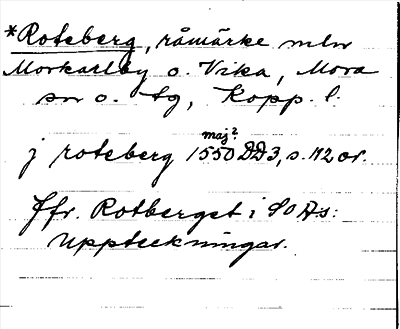 *Roteberg, råmärke mln
Morkarlby o. Vika, Mora
sn o. tg, Kopp. l.
maj?
j roteberg 1550 DD3, s. 112 or.
Jfr. Rotberget i SOAs:
Uppteckningar.